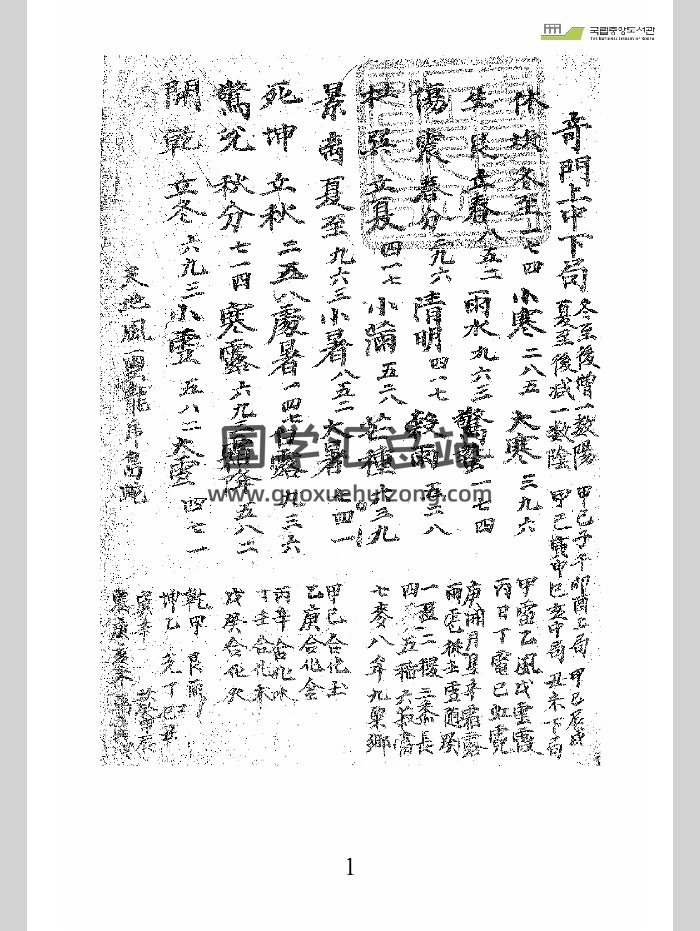 국립중앙도서관
THE NATIONAL LIBRARY OF KOREA
奇門上中下局
冬至後增一数陽
夏至後減一数陰
甲己子午卯酉上局 甲己辰戌
甲己寅申巳亥中局 丑未下局
休坎冬至一七四小寒二八五大寒三九六
生艮立春八五二雨水九六三驚蟄一七四
傷震春分三九六清明四一七穀雨五二八
杜巽立夏四一七小滿五二八芒種六三九
景离夏至九六三小暑八五二大暑七四一
死坤立秋二五八處暑一四七白露九三六
驚兌秋分七一四寒露六九三霜降五八二
開乾立冬六九三小雪五八二大雪四七一
天地風雲龍虎鳥蛇
甲雷乙風戊雲霞
丙日丁電己虹霓
庚 月 辛霜露
雨
一 二稷三 長
四 五稻六菽富
七麥八 九粟鄉
甲己合化土
乙庚合化金
丙辛合化水
丁壬合化木
戊癸合化火
乾甲 艮丙
坤乙 兌丁巳丑
震庚亥未
国学汇总站
www.guoxuehuizong.com
1